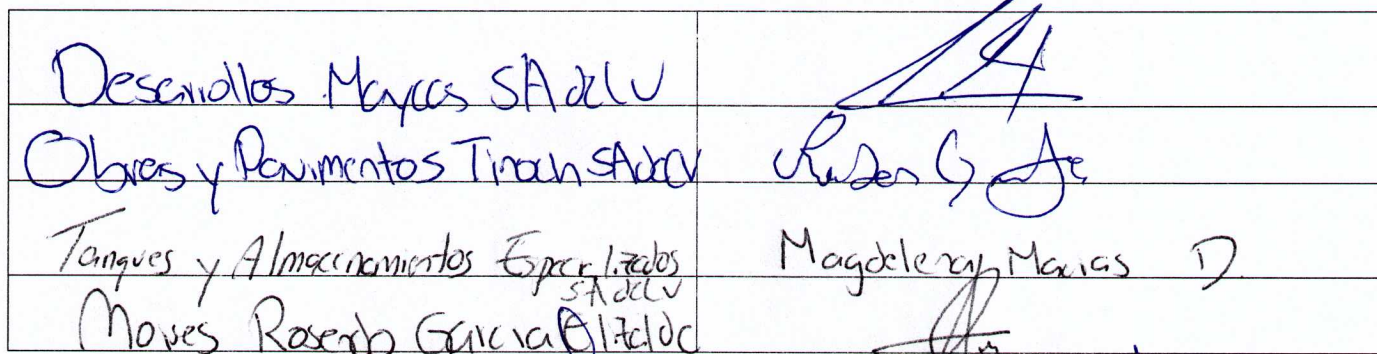 Desarrollos Maycas SA de CV
Obras y Pavimentos Tinoch SA de CV
Tanques y Almacenamientos Especializados SA de CV
Magdalena Macias D.
Moises Rosendo Garcia